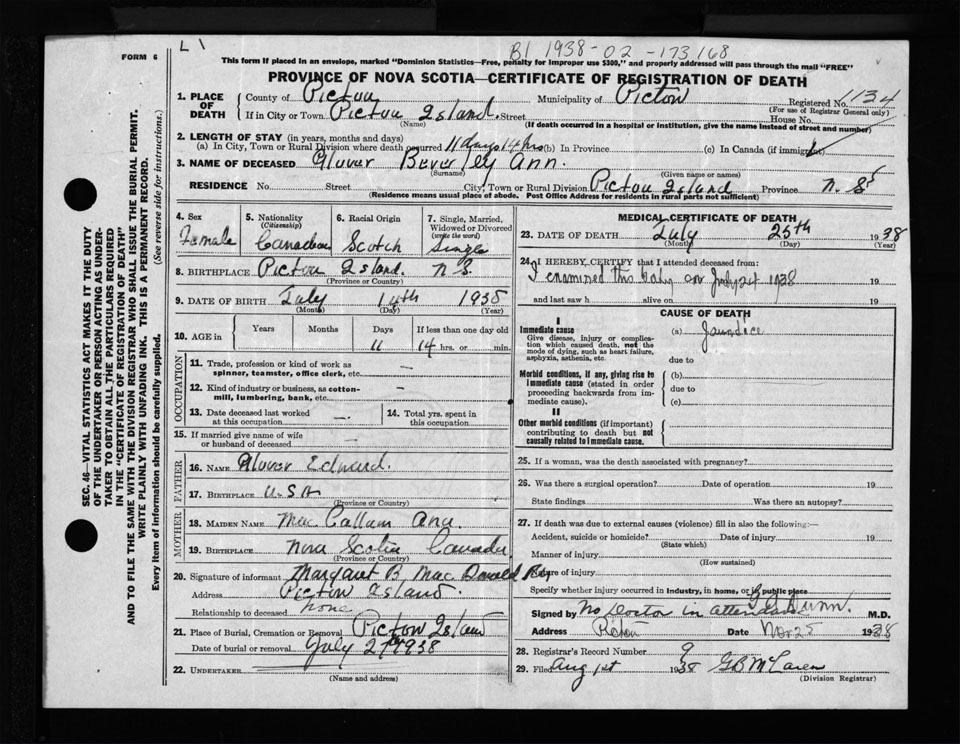 L \
B1 1938-02-173168
FORM 6
This form If placed in an envelope, marked "Dominion Statistics—Free, penalty for improper use $300," and properly addressed will pass through the mail "FREE"
PROVINCE OF NOVA SCOTIA—CERTIFICATE OF REGISTRATION OF DEATH
1. PLACE OF DEATH County of Pictou Municipality of Pictou Registered No. 1134
(For use of Registrar General only)
If in City or Town Pictou Island. Street House No.
(Name) (If death occurred in a hospital or institution, give the name instead of street and number)
2. LENGTH OF STAY (in years, months and days)
(a) In City, Town or Rural Division where death occurred 11 days 14 hrs (b) In Province (c) In Canada (if immigrant)
3. NAME OF DECEASED Glover Beverley Ann.
(Surname) (Given name or names)
RESIDENCE No. Street City, Town or Rural Division Pictou Island Province N.S.
(Residence means usual place of abode. Post Office Address for residents in rural parts not sufficient)
4. Sex Female
5. Nationality (Citizenship) Canadian
6. Racial Origin Scotch
7. Single, Married, Widowed or Divorced (write the word) Single
8. BIRTHPLACE Pictou Island. N.S.
(Province or Country)
9. DATE OF BIRTH July 14th 1938
(Month) (Day) (Year)
10. AGE in Years Months Days If less than one day old
11 14 hrs. or min.
OCCUPATION
11. Trade, profession or kind of work as spinner, teamster, office clerk, etc. —
12. Kind of industry or business, as cotton-mill, lumbering, bank, etc. —
13. Date deceased last worked at this occupation —
14. Total yrs. spent in this occupation
15. If married give name of wife or husband of deceased —
FATHER
16. NAME Glover Edward.
17. BIRTHPLACE U.S.A
(Province or Country)
MOTHER
18. MAIDEN NAME MacCallum Ana
19. BIRTHPLACE Nova Scotia Canada
(Province or Country)
20. Signature of informant Margaret B. MacDonald
Address Pictou Island.
Relationship to deceased none
21. Place of Burial, Cremation or Removal Pictou Island
Date of burial or removal July 27 1938
22. UNDERTAKER
(Name and address)
MEDICAL CERTIFICATE OF DEATH
23. DATE OF DEATH July 25th 1938
(Month) (Day) (Year)
24. I HEREBY CERTIFY that I attended deceased from:
I examined this baby on July 24 1938 19
and last saw h alive on 19
CAUSE OF DEATH
I
Immediate cause (a) Jaundice
Give disease, injury or complication which caused death, not the mode of dying, such as heart failure, asphyxia, asthenia, etc.
due to
Morbid conditions, if any, giving rise to immediate cause (stated in order proceeding backwards from immediate cause).
(b)
due to
(c)
II
Other morbid conditions (if important) contributing to death but not causally related to immediate cause.
25. If a woman, was the death associated with pregnancy?
26. Was there a surgical operation? Date of operation 19
State findings Was there an autopsy?
27. If death was due to external causes (violence) fill in also the following:—
Accident, suicide or homicide? Date of injury 19
(State which)
Manner of injury
(How sustained)
Nature of injury
Specify whether injury occurred in Industry, in home, or in public place
Signed by No Doctor in attendance Dunn. M.D.
Address Pictou Date Nov 25 1938
28. Registrar's Record Number 9
29. Filed Aug 1st 1938 G B McLaren
(Division Registrar)
SEC. 46—VITAL STATISTICS ACT MAKES IT THE DUTY
OF THE UNDERTAKER OR PERSON ACTING AS UNDER-
TAKER TO OBTAIN ALL THE PARTICULARS REQUIRED
IN THE "CERTIFICATE OF REGISTRATION OF DEATH"
AND TO FILE THE SAME WITH THE DIVISION REGISTRAR WHO SHALL ISSUE THE BURIAL PERMIT.
WRITE PLAINLY WITH UNFADING INK. THIS IS A PERMANENT RECORD.
Every item of information should be carefully supplied. (See reverse side for instructions.)